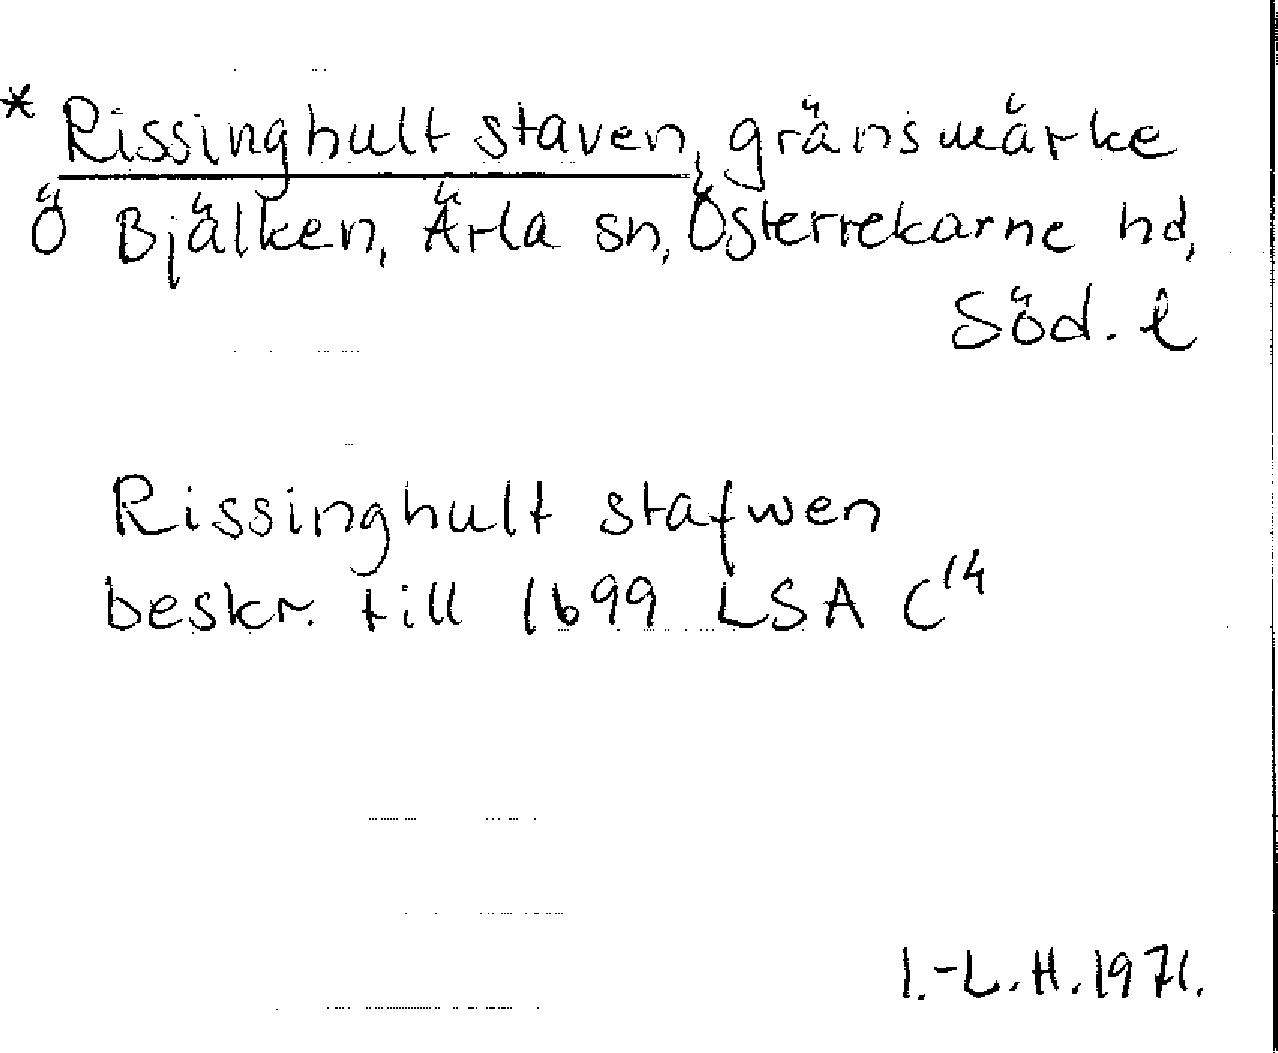 * Rissinghult staven, gränsmärke
Ö Bjälken, Ärla sn, Österrekarne hd,
Söd. l
Rissinghult stafwen
beskr. till 1699 LSA C¹⁴
I.-L.H. 1971.